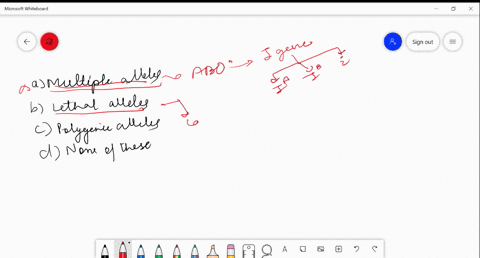 Microsoft Whiteboard
Sign out
a) Multiple alleles → ABO → I gene
I^A I^B i
b) Lethal alleles
c) Polygenic alleles
d) None of these